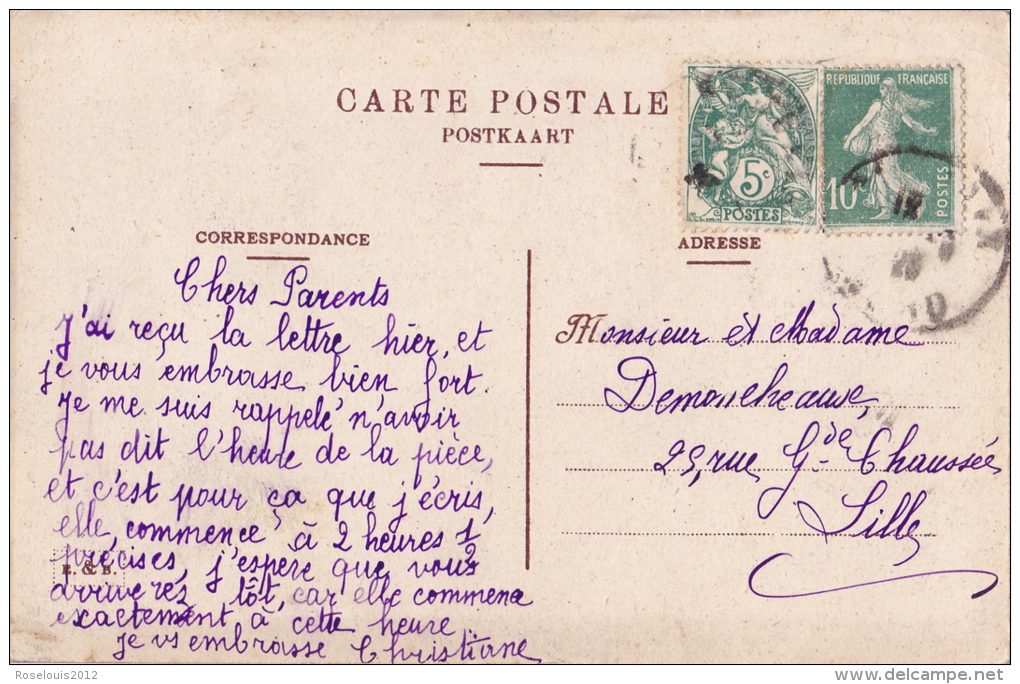 CARTE POSTALE
POSTKAART
RÉPUBLIQUE FRANÇAISE
5c
POSTES
10
POSTES
CORRESPONDANCE
ADRESSE
Chers Parents
J'ai reçu la lettre hier, et
je vous embrasse bien fort.
Je me suis rappelé n'avoir
pas dit l'heure de la pièce,
et c'est pour ça que j'écris,
elle commence à 2 heures 1/2
précises, j'espere que vous
arriverez tôt, car elle commence
exactement à cette heure
je vs embrasse Christiane
E. & B.
Monsieur et Madame
25, rue Gde Chaussée
Lille
Roselouis2012
www.delcampe.net